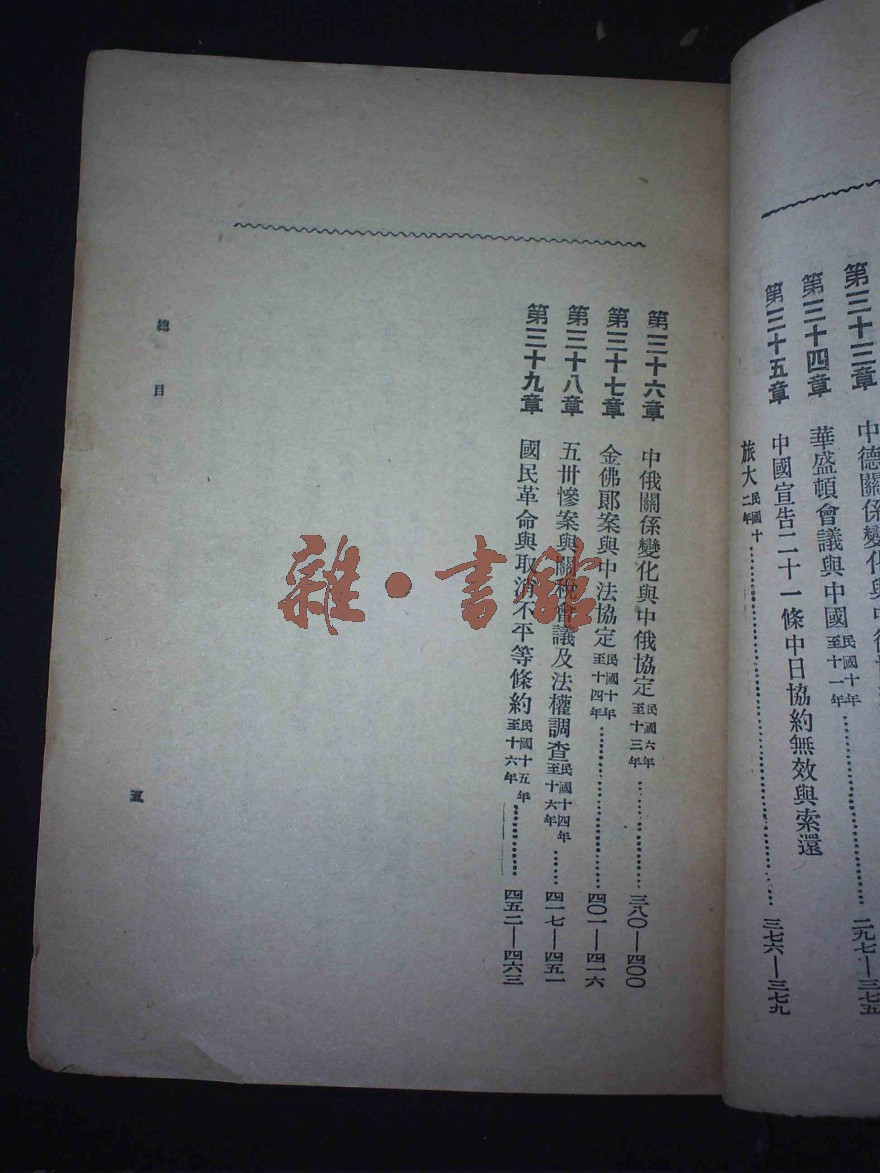 第三十三章
第三十四章 華盛頓會議與中國 民國十年至十一年 二九七—三七五
第三十五章 中國宣告二十一條中日協約無效與索還
旅大 民國十二年 三七六—三七九
第三十六章 中俄關係變化與中俄協定 民國六年至十三年 三八〇—四〇〇
第三十七章 金佛郎案與中法協定 民國十年至十四年 四〇一—四一六
第三十八章 五卅慘案與關稅會議及法權調查 民國十四年至十六年 四一七—四五一
第三十九章 國民革命與取消不平等條約 民國十五年至十六年 四五二—四六三
總目
五
雜·書館